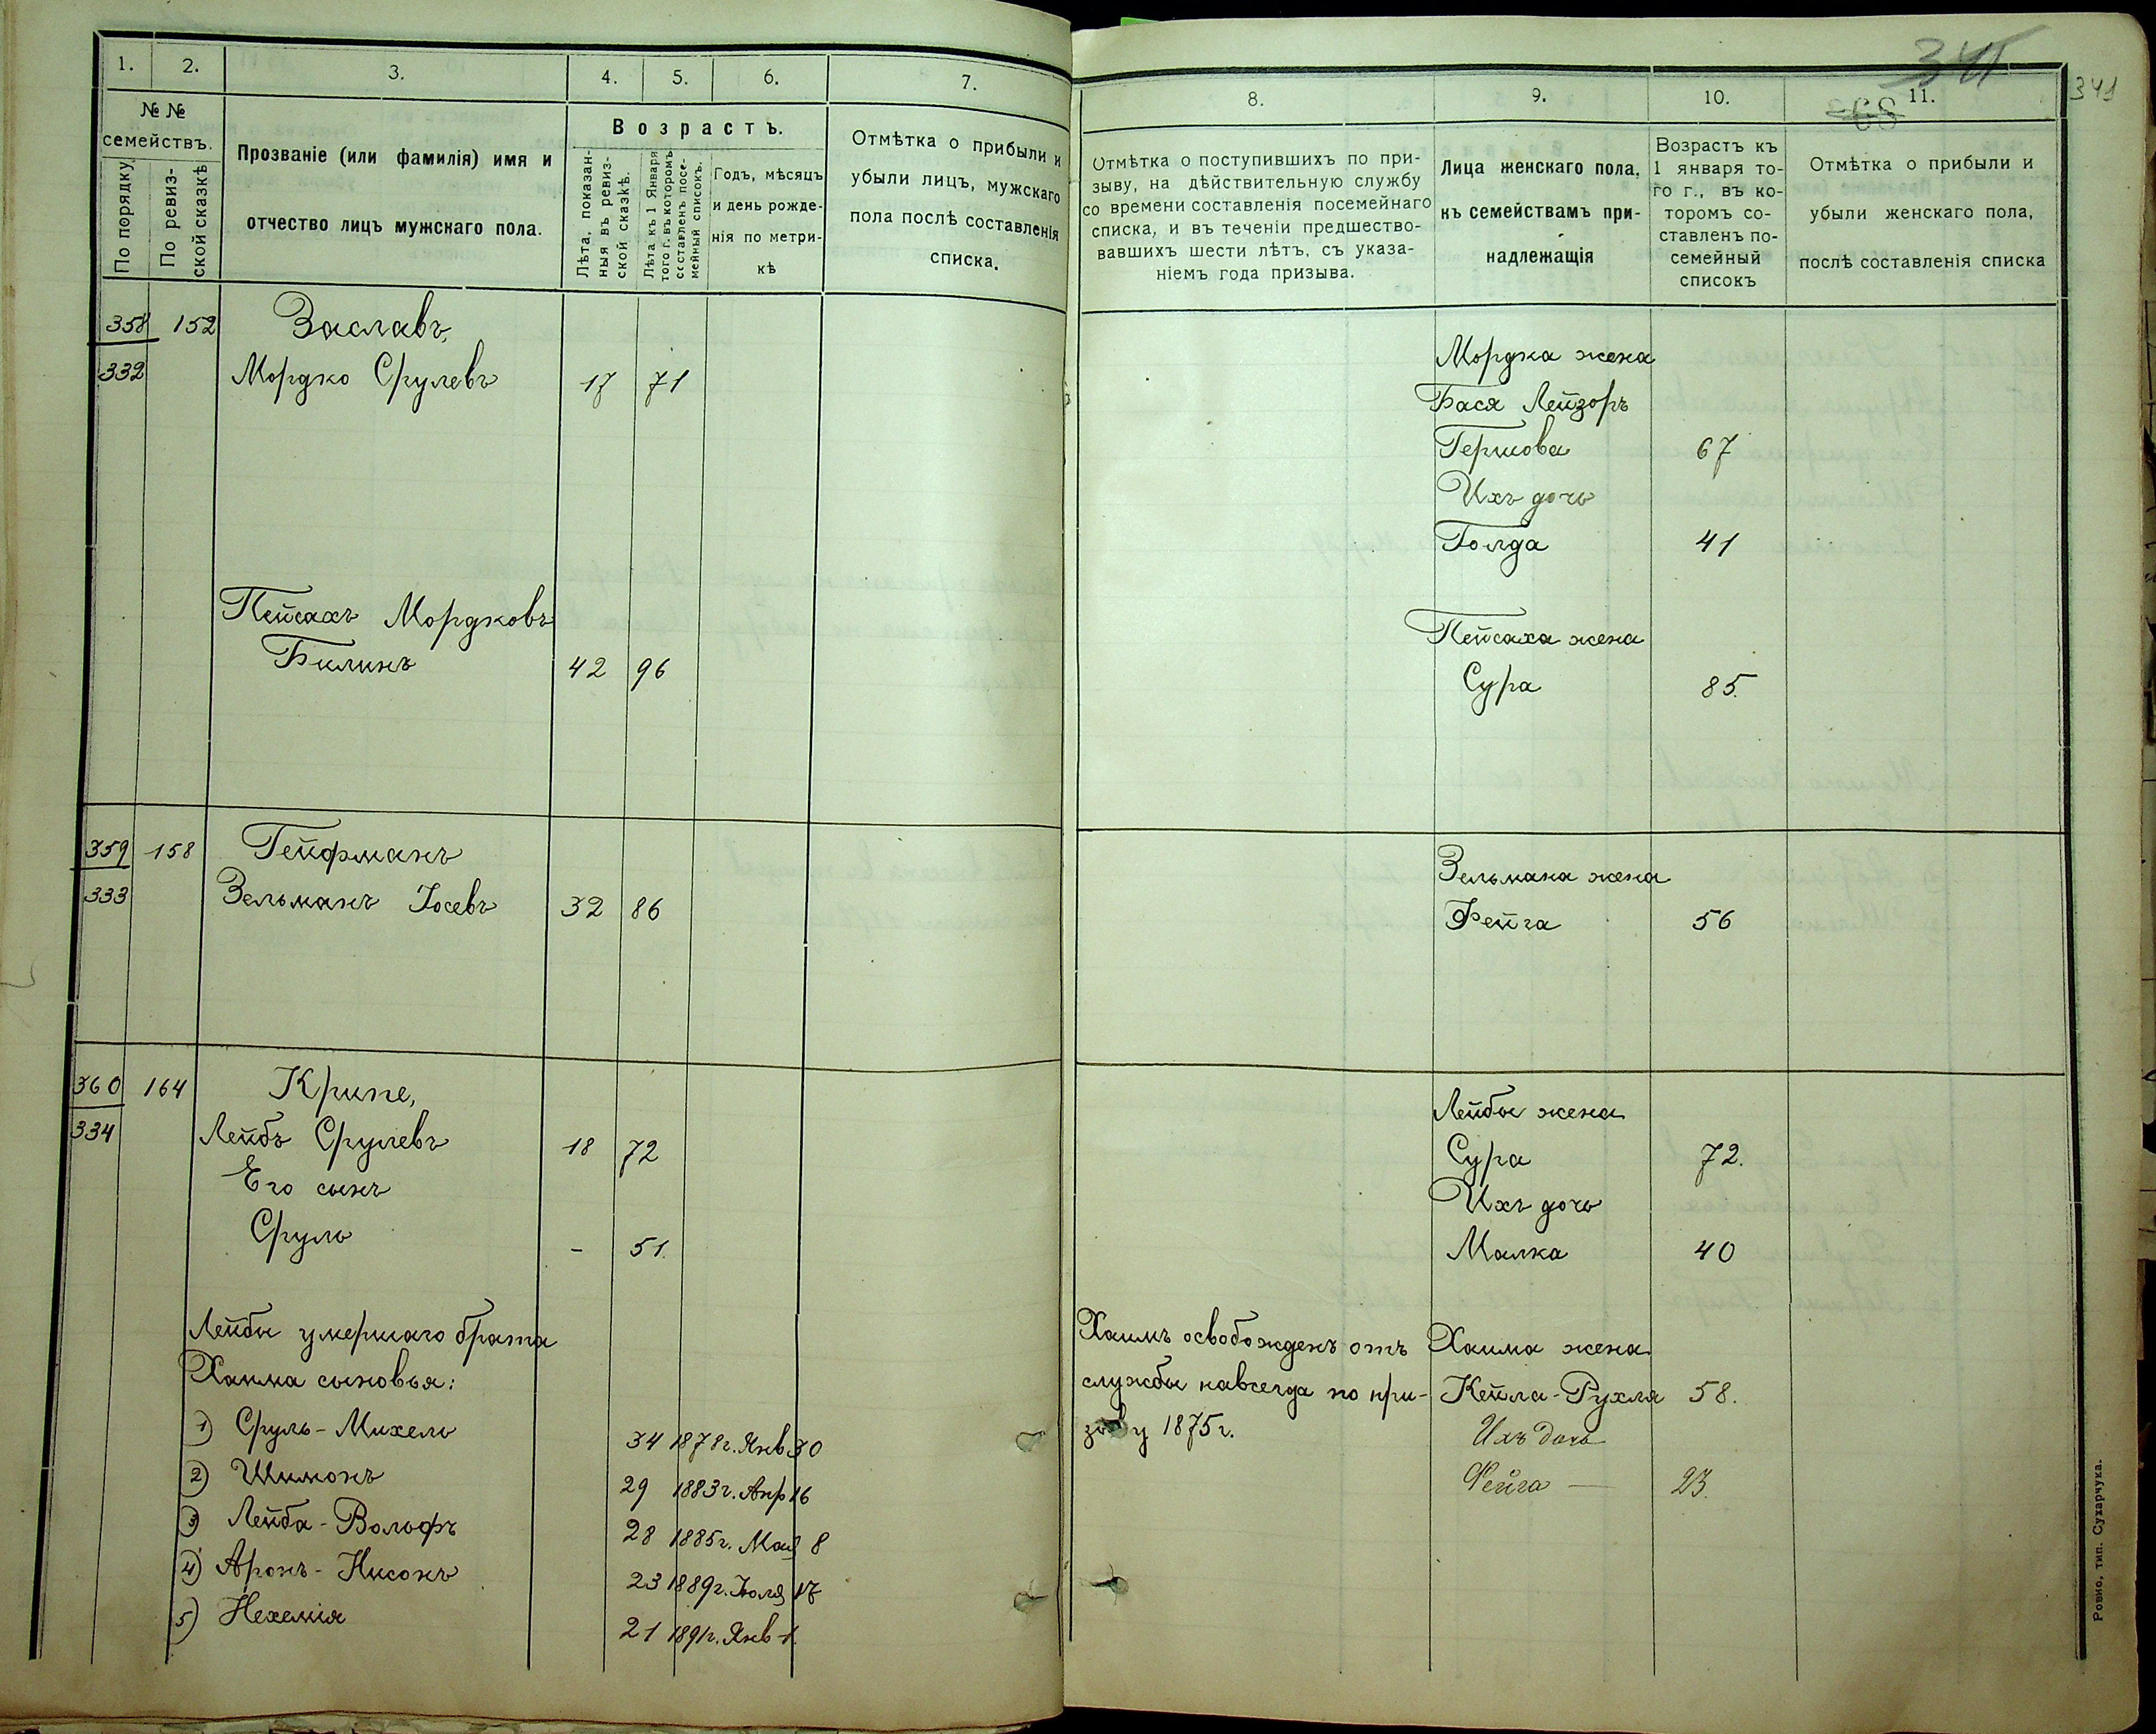 1. 2. 3. 4. 5. 6. 7.
№ №
семействъ.
По порядку
По ревиз-
ской сказкѣ
Прозваніе (или фамилія) имя и
отчество лицъ мужскаго пола.
Возрастъ.
Лѣта, показан-
ныя въ ревиз-
ской сказкѣ.
Лѣта къ 1 Января
того г. въ которомъ
составленъ посе-
мейный списокъ.
Годъ, мѣсяцъ
и день рожде-
нія по метри-
кѣ
Отмѣтка о прибыли и
убыли лицъ, мужскаго
пола послѣ составленія
списка.
358 152 Заславъ,
332 Мордко Срулевъ 17 71
Пейсахъ Мордковъ
Билинъ 42 96
359 158 Гейфманъ
333 Зельманъ Іосевъ 32 86
360 164 Крипе,
334 Лейбъ Срулевъ 18 72
Его сынъ
Сруль - 51.
Лейбы умершаго брата
Хаима сыновья:
1) Сруль-Михель 34 1878г. Янв 30
2) Шимонъ 29 1883г. Апр 16
3) Лейба-Вольфъ 28 1885г. Мая 8
4) Аронъ-Нисонъ 23 1889г. Іюля 17
5) Нехемія 21 1891г. Янв 1.
341
341
68
8. 9. 10. 11.
Отмѣтка о поступившихъ по при-
зыву, на дѣйствительную службу
со времени составленія посемейнаго
списка, и въ теченіи предшество-
вавшихъ шести лѣтъ, съ указа-
ніемъ года призыва.
Лица женскаго пола,
къ семействамъ при-
надлежащія
Возрастъ къ
1 января то-
го г., въ ко-
торомъ со-
ставленъ по-
семейный
списокъ
Отмѣтка о прибыли и
убыли женскаго пола,
послѣ составленія списка
Мордка жена
Бася Лейзоръ
Гершова 67
Ихъ дочь
Голда 41
Пейсаха жена
Сура 85.
Зельмана жена
Фейга 56
Лейбы жена
Сура 72.
Ихъ дочь
Малка 40
Хаимъ освобожденъ отъ
службы навсегда по при-
зыву 1875г.
Хаима жена
Кейла-Рухля 58.
Ихъ дочь
Фейга — 23.
Ровно, тип. Сухарчука.